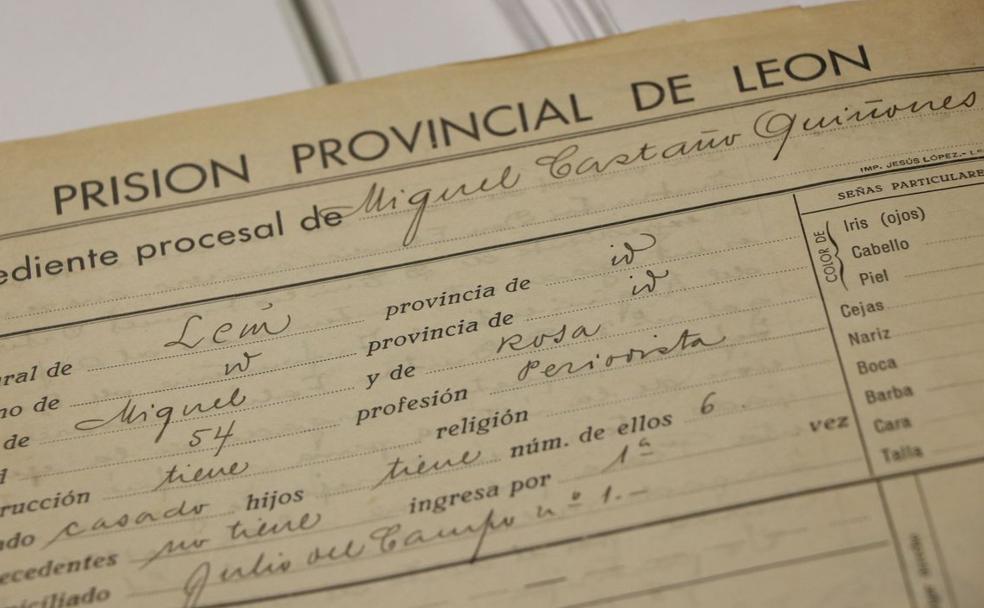 PRISION PROVINCIAL DE LEON
ediente procesal de Miguel Castaño Quiñones
IMP. JESÚS LÓPEZ.- L
ural de León provincia de id
no de id provincia de id
de Miguel y de Rosa
54 profesión Periodista
rucción tiene religión
do casado hijos tiene núm. de ellos 6.
ecedentes no tiene ingresa por 1ª vez
iciliado Julio del Campo nº 1.-
SEÑAS PARTICULARE
COLOR DE
Iris (ojos)
Cabello
Piel
Cejas
Nariz
Boca
Barba
Cara
Talla